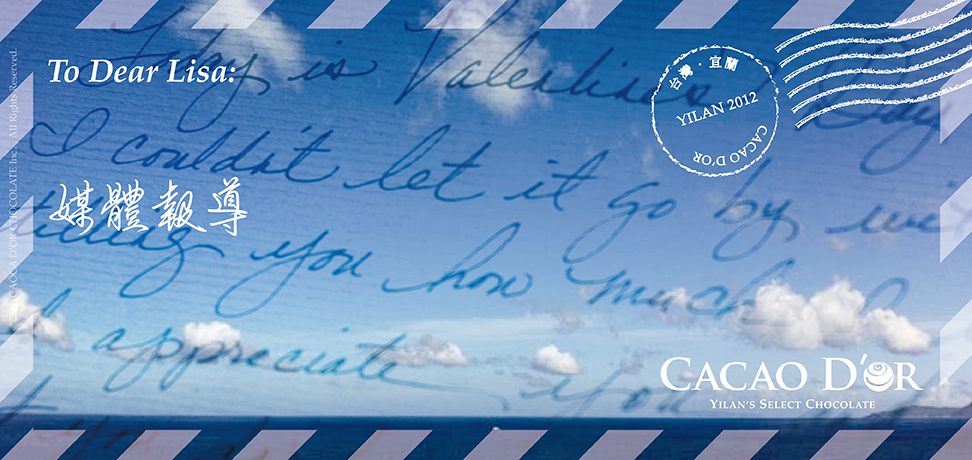 To Dear Lisa:
媒體報導
Today is Valentine's Day
I couldn't let it go by
telling you how much I
appreciate you
台灣・宜蘭
YILAN 2012
CACAO D'OR
CACAO D'OR
YILAN'S SELECT CHOCOLATE
CACAO D'OR CHOCOLATE Inc. All Rights Reserved.